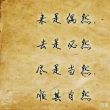 来是偶然
去是必然
尽是当然
顺其自然